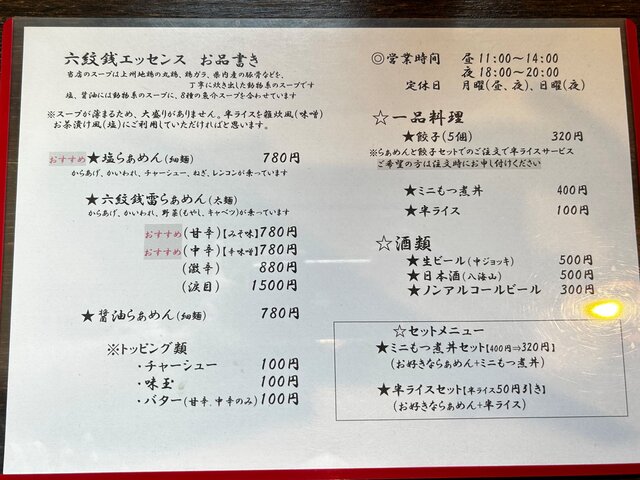 六紋銭エッセンス お品書き
当店のスープは上州地鶏の丸鶏、鶏ガラ、県内産の豚骨などを、
丁寧に炊き出した動物系のスープです
塩、醤油には動物系のスープに、8種の魚介スープを合わせています
※スープが薄まるため、大盛りがありません。半ライスを雑炊風(味噌)
お茶漬け風(塩)にご利用していただければと思います。
おすすめ ★塩らぁめん(細麺) 780円
からあげ、かいわれ、チャーシュー、ねぎ、レンコンが乗っています
★六紋銭雷らぁめん(太麺)
からあげ、かいわれ、野菜(もやし、キャベツ)が乗っています
おすすめ (甘辛)【みそ味】780円
おすすめ (中辛)【辛味噌】780円
(激辛) 880円
(涙目) 1500円
★醤油らぁめん(細麺) 780円
※トッピング類
・チャーシュー 100円
・味玉 100円
・バター(甘辛.中辛のみ)100円
◎営業時間 昼 11:00～14:00
夜 18:00～20:00
定休日 月曜(昼、夜)、日曜(夜)
☆一品料理
★餃子(5個) 320円
※らぁめんと餃子セットでのご注文で半ライスサービス
ご希望の方は注文時にお申し付けください
★ミニもつ煮丼 400円
★半ライス 100円
☆酒類
★生ビール(中ジョッキ) 500円
★日本酒(八海山) 500円
★ノンアルコールビール 300円
☆セットメニュー
★ミニもつ煮丼セット【400円⇒320円】
(お好きならぁめん+ミニもつ煮丼)
★半ライスセット【半ライス50円引き】
(お好きならぁめん+半ライス)